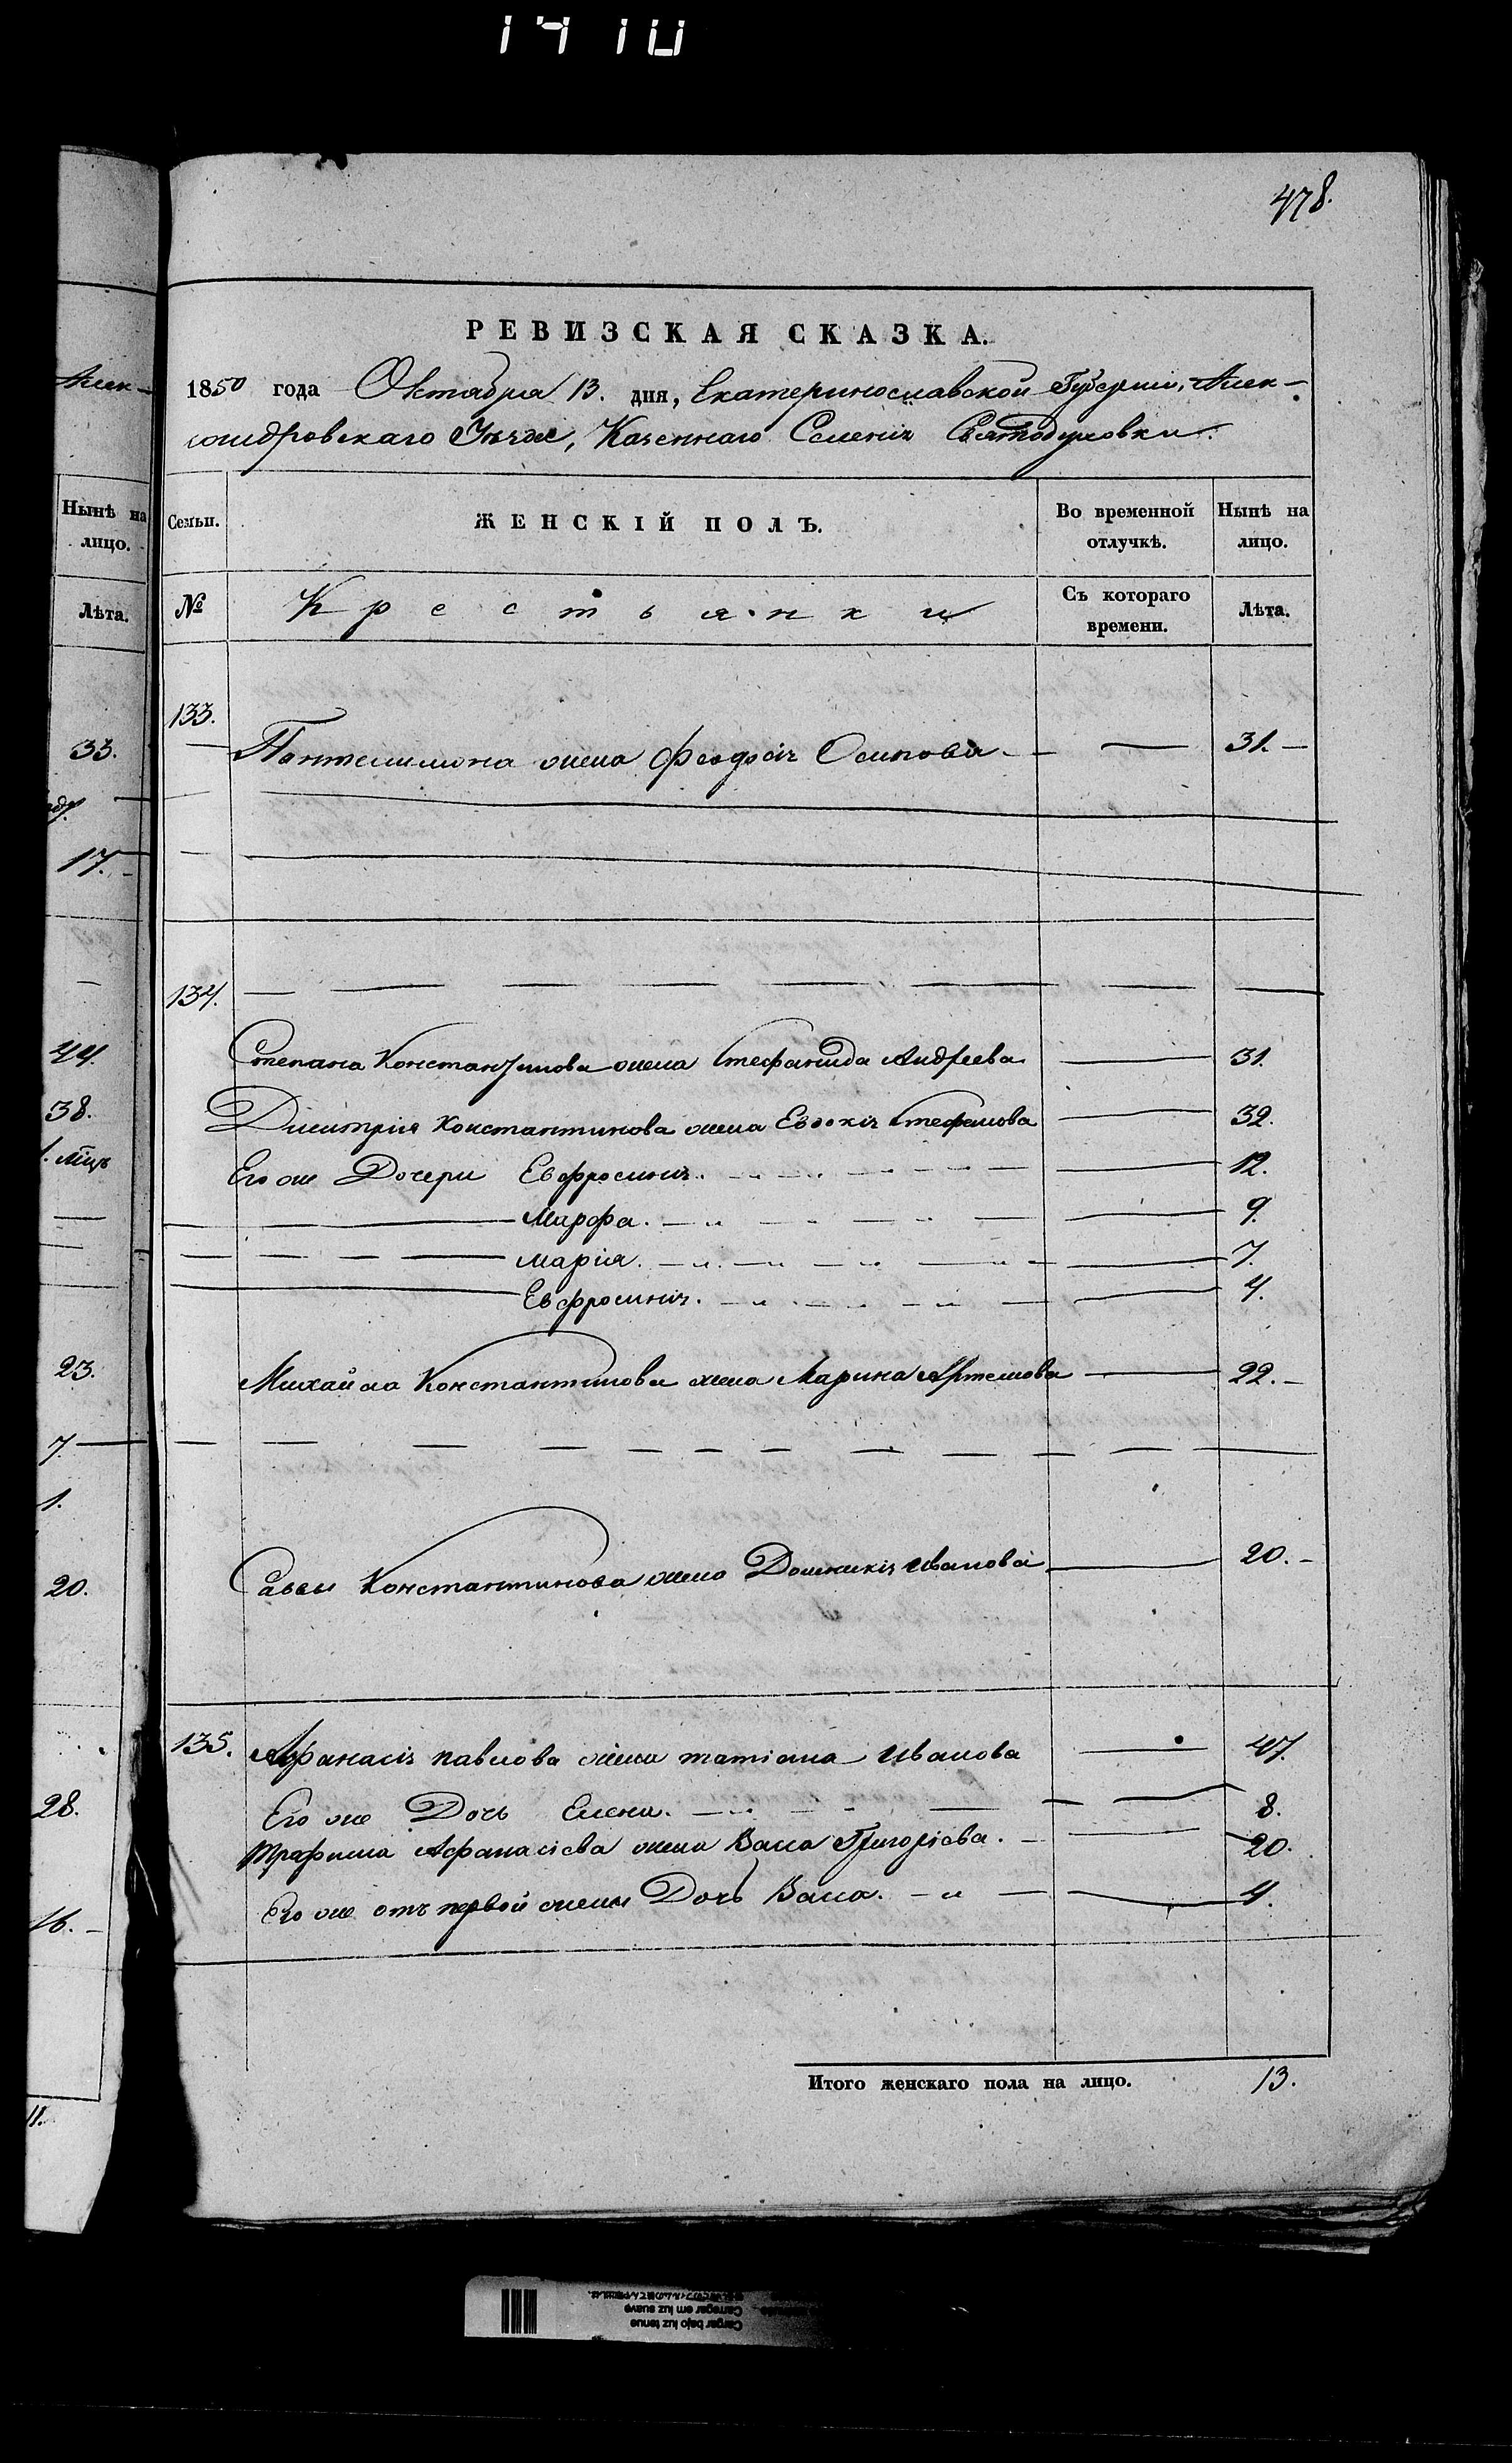 1410
478.
РЕВИЗСКАЯ СКАЗКА.
1850 года Октября 13. дня, Екатеринославской Губерніи, Алек-
сандровскаго Уѣзда, Казеннаго Селенія Святодуховки.
Семьи. ЖЕНСКІЙ ПОЛЪ. Во временной отлучкѣ. Нынѣ на лицо.
№ Крестьянки Съ котораго времени. Лѣта.
133. Пантелимона жена Феодосія Осипова 31.
134.
Степана Константинова жена Стефанида Андреева 31.
Димитрія Константинова жена Евдокія Стефанова 32.
Его же Дочери Евфросинія. 12.
Марфа. 9.
Марія. 7.
Евфросинія. 4.
Михайла Константинова жена Марина Артемова 22.
Саввы Константинова жена Домникія Иванова 20.
135. Афанасія Павлова жена Татіана Иванова 47.
Его же Дочь Елена. 8.
Трафима Афанасіева жена Васса Григоріева. 20.
Его же отъ первой жены Дочь Васса. 4.
Итого женскаго пола на лицо. 13.
Алек-
Нынѣ на
лицо.
Лѣта.
33.
17.
44.
38.
23.
7.
1.
20.
28.
16.
11.
Cargar bajo luz tenue
Carregar em luz suave